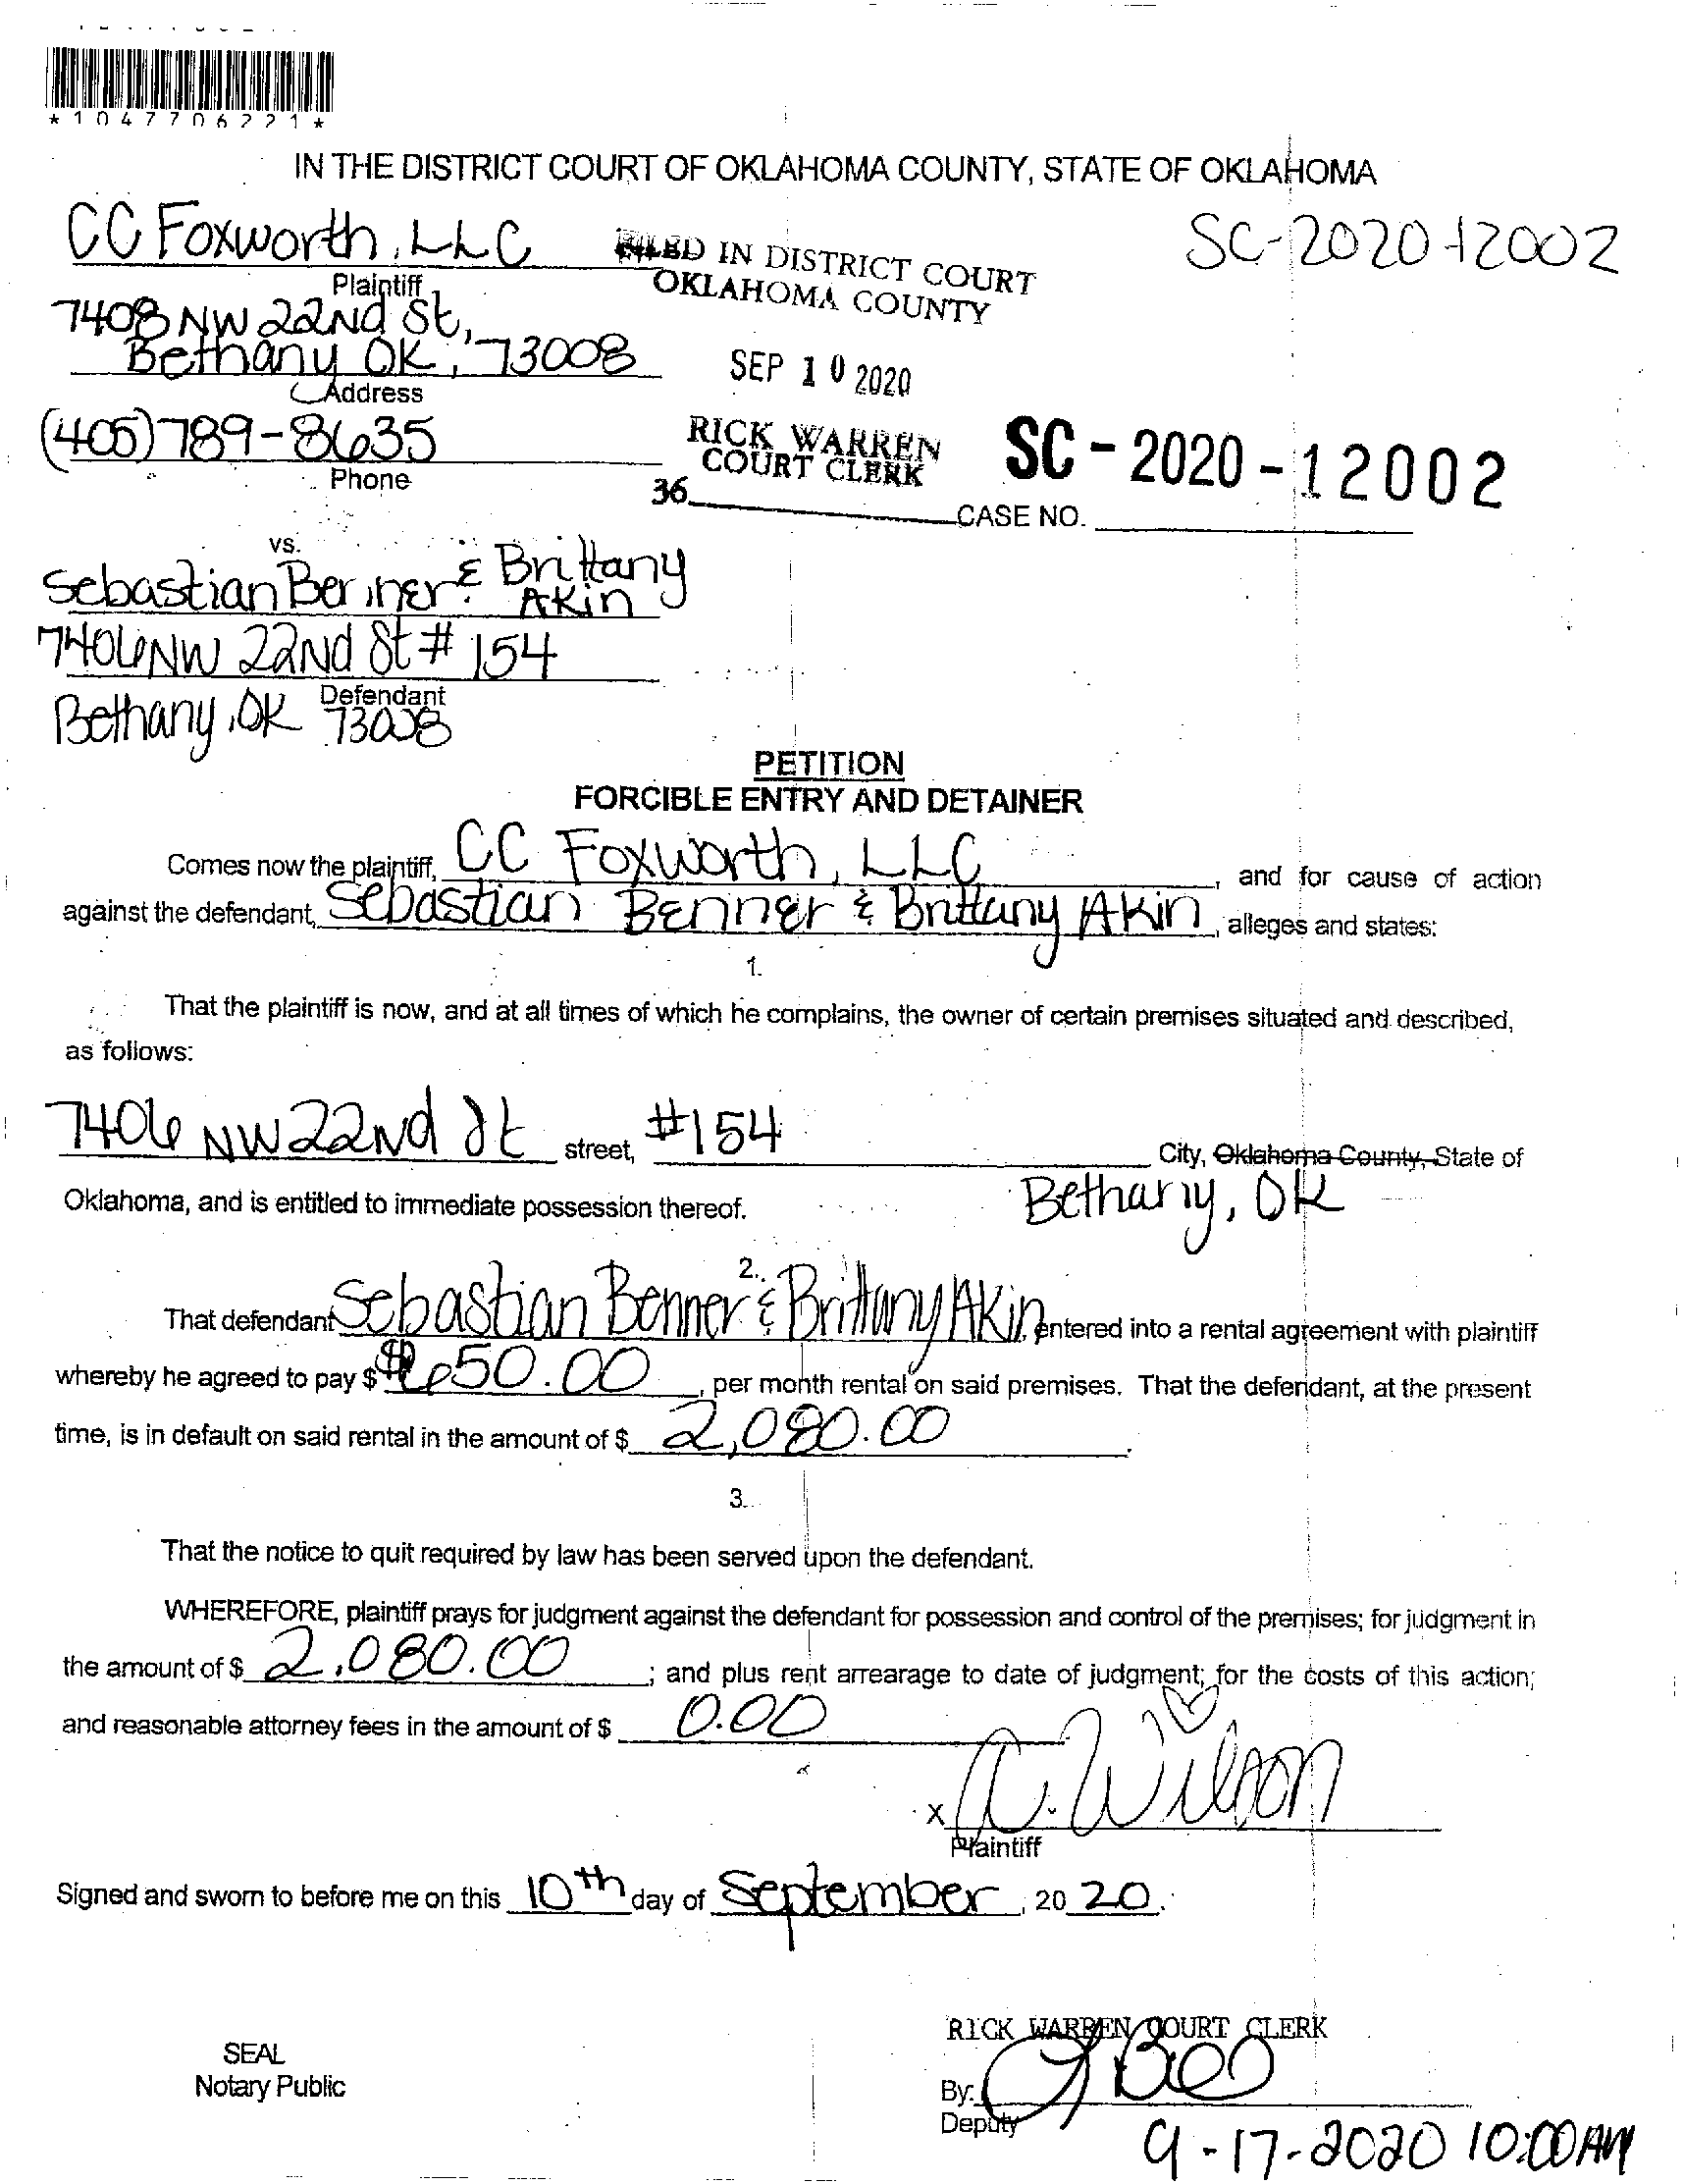 *1047706221*
IN THE DISTRICT COURT OF OKLAHOMA COUNTY, STATE OF OKLAHOMA
CC Foxworth, LLC
Plaintiff
FILED IN DISTRICT COURT
OKLAHOMA COUNTY
SC-2020-12002
7408 NW 22nd St,
Bethany OK, 73008
Address
SEP 10 2020
(405)789-8635
Phone
RICK WARREN
COURT CLERK
36
SC-2020-12002
CASE NO.
vs.
Sebastian Benner & Brittany
Akin
7406 NW 22nd St # 154
Defendant
Bethany, OK 73008
PETITION
FORCIBLE ENTRY AND DETAINER
Comes now the plaintiff, CC Foxworth, LLC, and for cause of action
against the defendant, Sebastian Benner & Brittany Akin, alleges and states:
1.
That the plaintiff is now, and at all times of which he complains, the owner of certain premises situated and described,
as follows:
7406 NW 22nd St street, #154 City, Oklahoma County, State of
Bethany, OK
Oklahoma, and is entitled to immediate possession thereof.
2.
That defendant Sebastian Benner & Brittany Akin, entered into a rental agreement with plaintiff
whereby he agreed to pay $ $650.00, per month rental on said premises. That the defendant, at the present
time, is in default on said rental in the amount of $ 2,080.00.
3.
That the notice to quit required by law has been served upon the defendant.
WHEREFORE, plaintiff prays for judgment against the defendant for possession and control of the premises; for judgment in
the amount of $ 2,080.00; and plus rent arrearage to date of judgment; for the costs of this action;
and reasonable attorney fees in the amount of $ 0.00.
x A. Wilson
Plaintiff
Signed and sworn to before me on this 10th day of September, 20 20.
RICK WARREN COURT CLERK
SEAL
Notary Public
By:
Deputy
9-17-2020 10:00AM